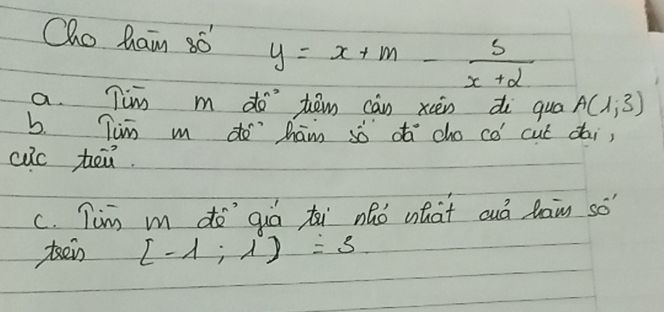 Cho hàm số y = x + m - \frac{5}{x+2}
a. Tìm m để tiệm cận xiên đi qua A(1;3)
b. Tìm m để hàm số đã cho có cực đại,
cực tiểu.
c. Tìm m để giá trị nhỏ nhất của hàm số
trên [-1; 1] = 5